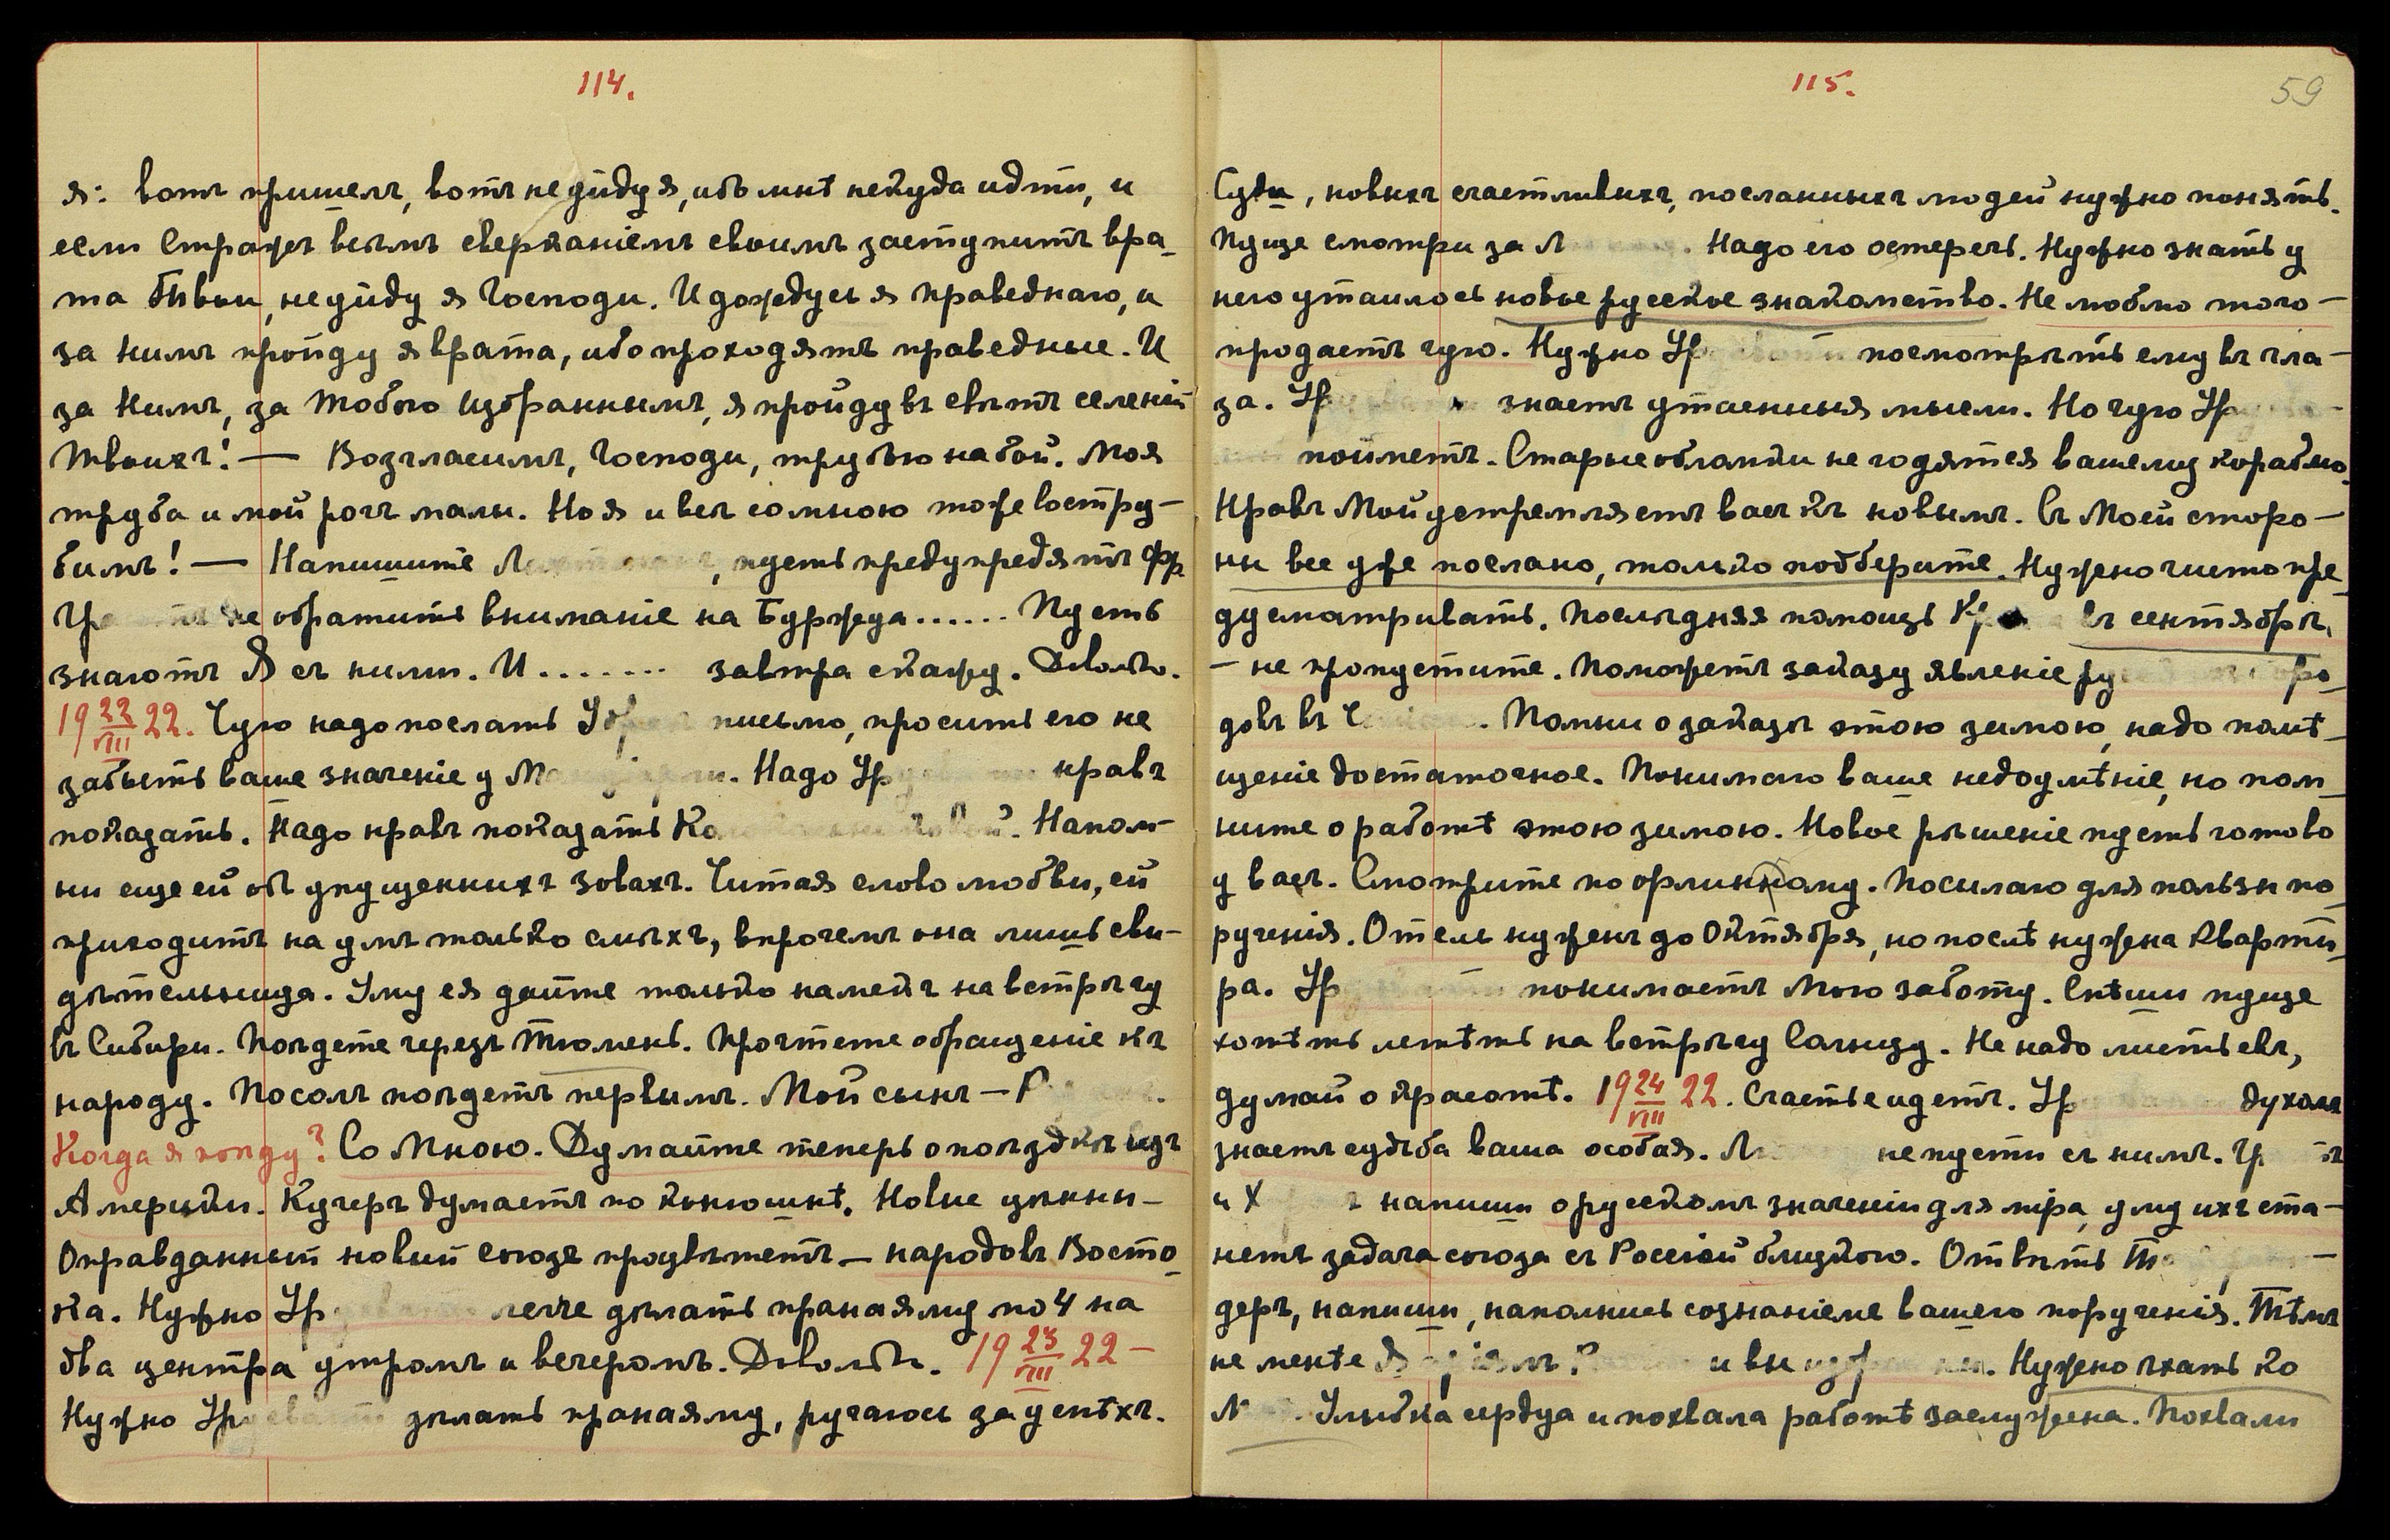 114.
я: вотъ пришелъ, вотъ не уйду я, ибъ мнѣ некуда идти, и
если Стражъ всѣмъ сверканіемъ своимъ заступитъ вра-
та Твои, не уйду я Господи. И дождусь я праведнаго, и
за Нимъ пройду я врата, ибо проходятъ праведные. И
за Нимъ, за Тобою Избраннымъ, я пройду въ свѣтъ селеній
Твоихъ! — Возгласимъ, Господи, трубою на бой. Моя
труба и мой рогъ малы. Но я и всѣ со мною тоже востру-
бимъ! — Напишите пусть предупредятъ
обратить вниманіе на Буржуа...... Пусть
знаютъ Я съ ними. И ....... завтра скажу. Довольно.
19 22/VIII 22. Чую надо послать письмо, просить его не
забыть ваше значеніе у Надо нравъ
показать. Надо нравъ показать Напом-
ни еще ей объ упущенныхъ зовахъ. Читая слово любви, ей
приходитъ на умъ только смѣхъ, впрочемъ она лишь сви-
дѣтельница. Уму ея дайте только намекъ на встрѣчу
въ Сибири. Поѣдете черезъ Тюмень. Прочтете обращеніе къ
народу. Посолъ поѣдетъ первымъ. Мой сынъ —
Когда я поѣду? Со Мною. Думайте теперь о поѣздкѣ изъ
Америки. Кучеръ думаетъ по конюшнѣ. Новые цѣнны-
Оправданный новый союзъ процвѣтетъ — народовъ Восто-
ка. Нужно легче дѣлать пранаяму по 4 на
два центра утромъ и вечеромъ. Довольно. 19 23/VIII 22 —
Нужно дѣлать пранаяму, ручаюсь за успѣхъ.
115.
59
Суди, новыхъ счастливыхъ, посланныхъ людей нужно понять.
Пуще смотри за Надо его остеречь. Нужно знать у
него утаилось новое русское знакомство. Не люблю того —
продаетъ чую. Нужно посмотрѣть ему въ гла-
за. знаетъ утаенныя мысли. Но чую
пойметъ. Старые обломки не годятся вашему кораблю.
Нравъ Мой устремляетъ васъ къ новымъ. Съ Моей сторо-
ны все уже послано, только подберите. Нужно чисто пре-
дусматривать. Послѣдняя помощь въ сентябрѣ,
— не пропустите. Поможетъ заказу явленіе
довъ въ Помни о заказѣ этою зимою, надо помѣ-
щеніе достаточное. Понимаю ваше недоумѣніе, но пом-
ните о работѣ этою зимою. Новое рѣшеніе пусть готово
у васъ. Смотрите по орлиному. Посылаю для пользы по-
рученія. Отель нуженъ до Октября, но послѣ нужна кварти-
ра. понимаетъ Мою заботу. Спѣши пуще
хотѣть летѣть на встрѣчу Солнцу. Не надо листьевъ,
думай о красотѣ. 19 24/VIII 22. Счастье идетъ. духомъ
знаетъ судьба ваша особая. не пусти съ нимъ.
и напиши о русскомъ значеніи для міра, уму ихъ ста-
нетъ задача союза съ Россіей близкою. Отвѣть
деръ, напиши, наполнись сознаніемъ вашего порученія. Тѣмъ
не менѣе и вы Нужно ѣхать ко
Улыбка сердца и похвала работѣ заслужена. Похвали